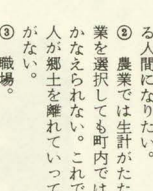 る人間になりたい。
② 農業では生計がたた
業を選択しても町内では
かなえられない。これで
人が郷土を離れていって
がない。
③ 職場。